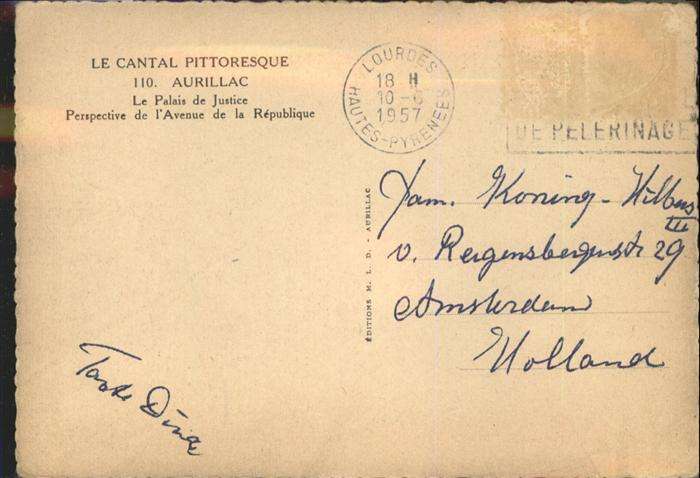 LE CANTAL PITTORESQUE
110. AURILLAC
Le Palais de Justice
Perspective de l'Avenue de la République
LOURDES
18 H
10-6
1957
HAUTES-PYRENEES
DE PELERINAGE
ÉDITIONS M. L. D. - AURILLAC
Fam. Koning-Wilbers
III
v. Reigersbergenstr 29
Amsterdam
Holland
Tante Dina